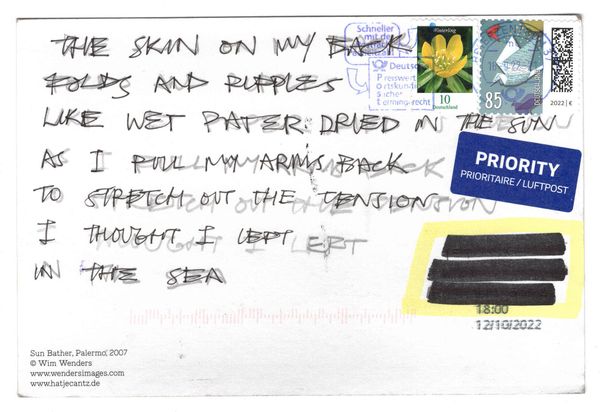 THE SKIN ON MY BACK
FOLDS AND RIPPLES
LIKE WET PAPER DRIED IN THE SUN
AS I PULL MY ARMS BACK
TO STRETCH OUT THE TENSION
I THOUGHT I LEFT
IN THE SEA
Schneller
mit der
Deutsche
Preiswert
termingerecht
Winterling
10
Deutschland
85
DEUTSCHLAND
2022 | €
PRIORITY
PRIORITAIRE / LUFTPOST
18:00
12/10/2022
Sun Bather, Palermo, 2007
© Wim Wenders
www.wendersimages.com
www.hatjecantz.de